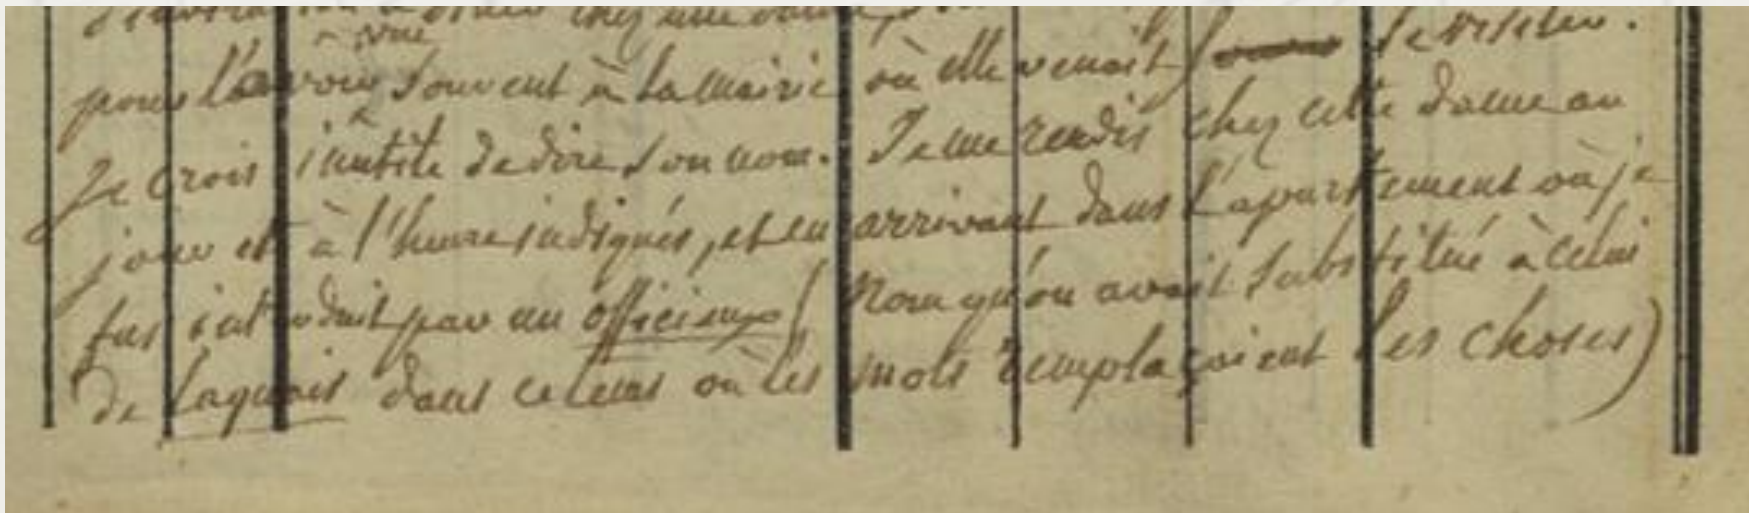 à diner chez une
vue
pour l'avoir souvent à la mairie où elle venoit
Je crois inutile de dire son nom. Je me rendis chez cette dame au
jour et à l'heure indiqués, et en arrivant dans l'apartement où je
fus introduit par un officieux (Nom qu'on avoit substitué à celui
de laquais dans ce tems où les mots remplaçoient les choses)